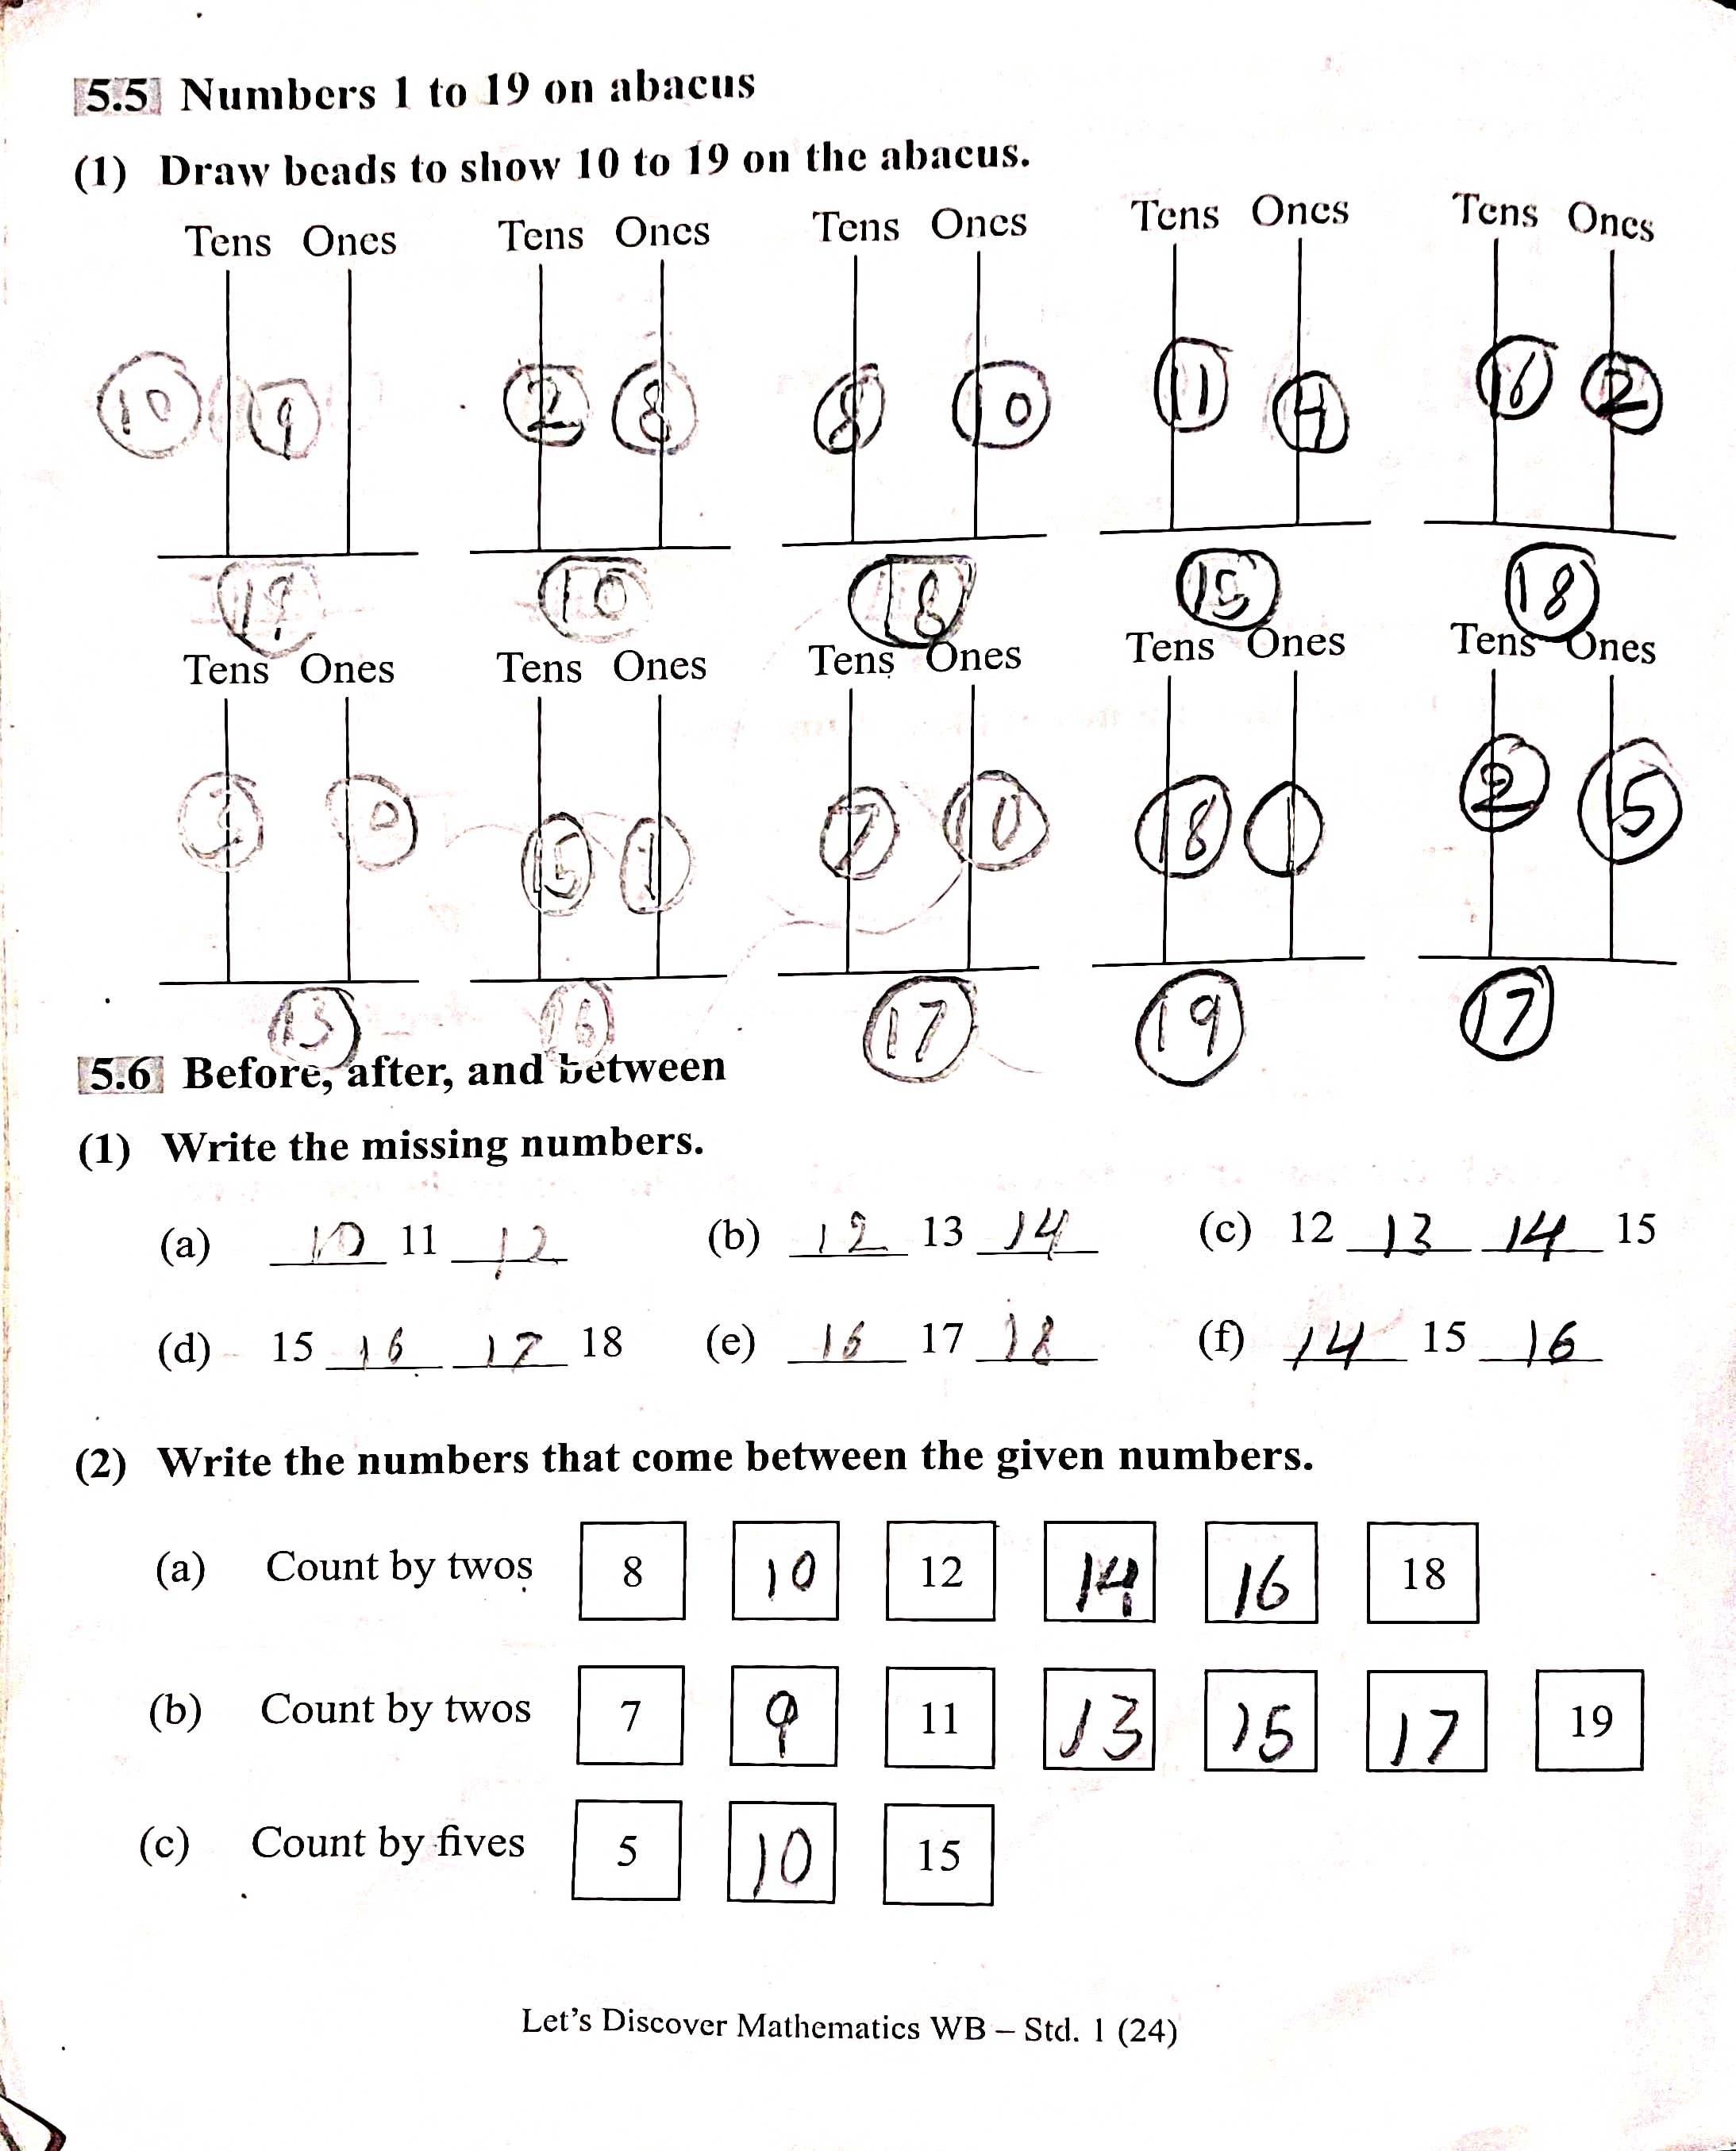 5.5 Numbers 1 to 19 on abacus
(1) Draw beads to show 10 to 19 on the abacus.
Tens Ones Tens Ones Tens Ones Tens Ones Tens Ones
10 9 2 8 8 10 11 4 16 2
19 10 18 15 18
Tens Ones Tens Ones Tens Ones Tens Ones Tens Ones
3 10 15 1 7 10 18 1 2 15
13 16 17 19 17
5.6 Before, after, and between
(1) Write the missing numbers.
(a) 10 11 12 (b) 12 13 14 (c) 12 13 14 15
(d) 15 16 17 18 (e) 16 17 18 (f) 14 15 16
(2) Write the numbers that come between the given numbers.
(a) Count by twos 8 10 12 14 16 18
(b) Count by twos 7 9 11 13 15 17 19
(c) Count by fives 5 10 15
Let's Discover Mathematics WB – Std. 1 (24)